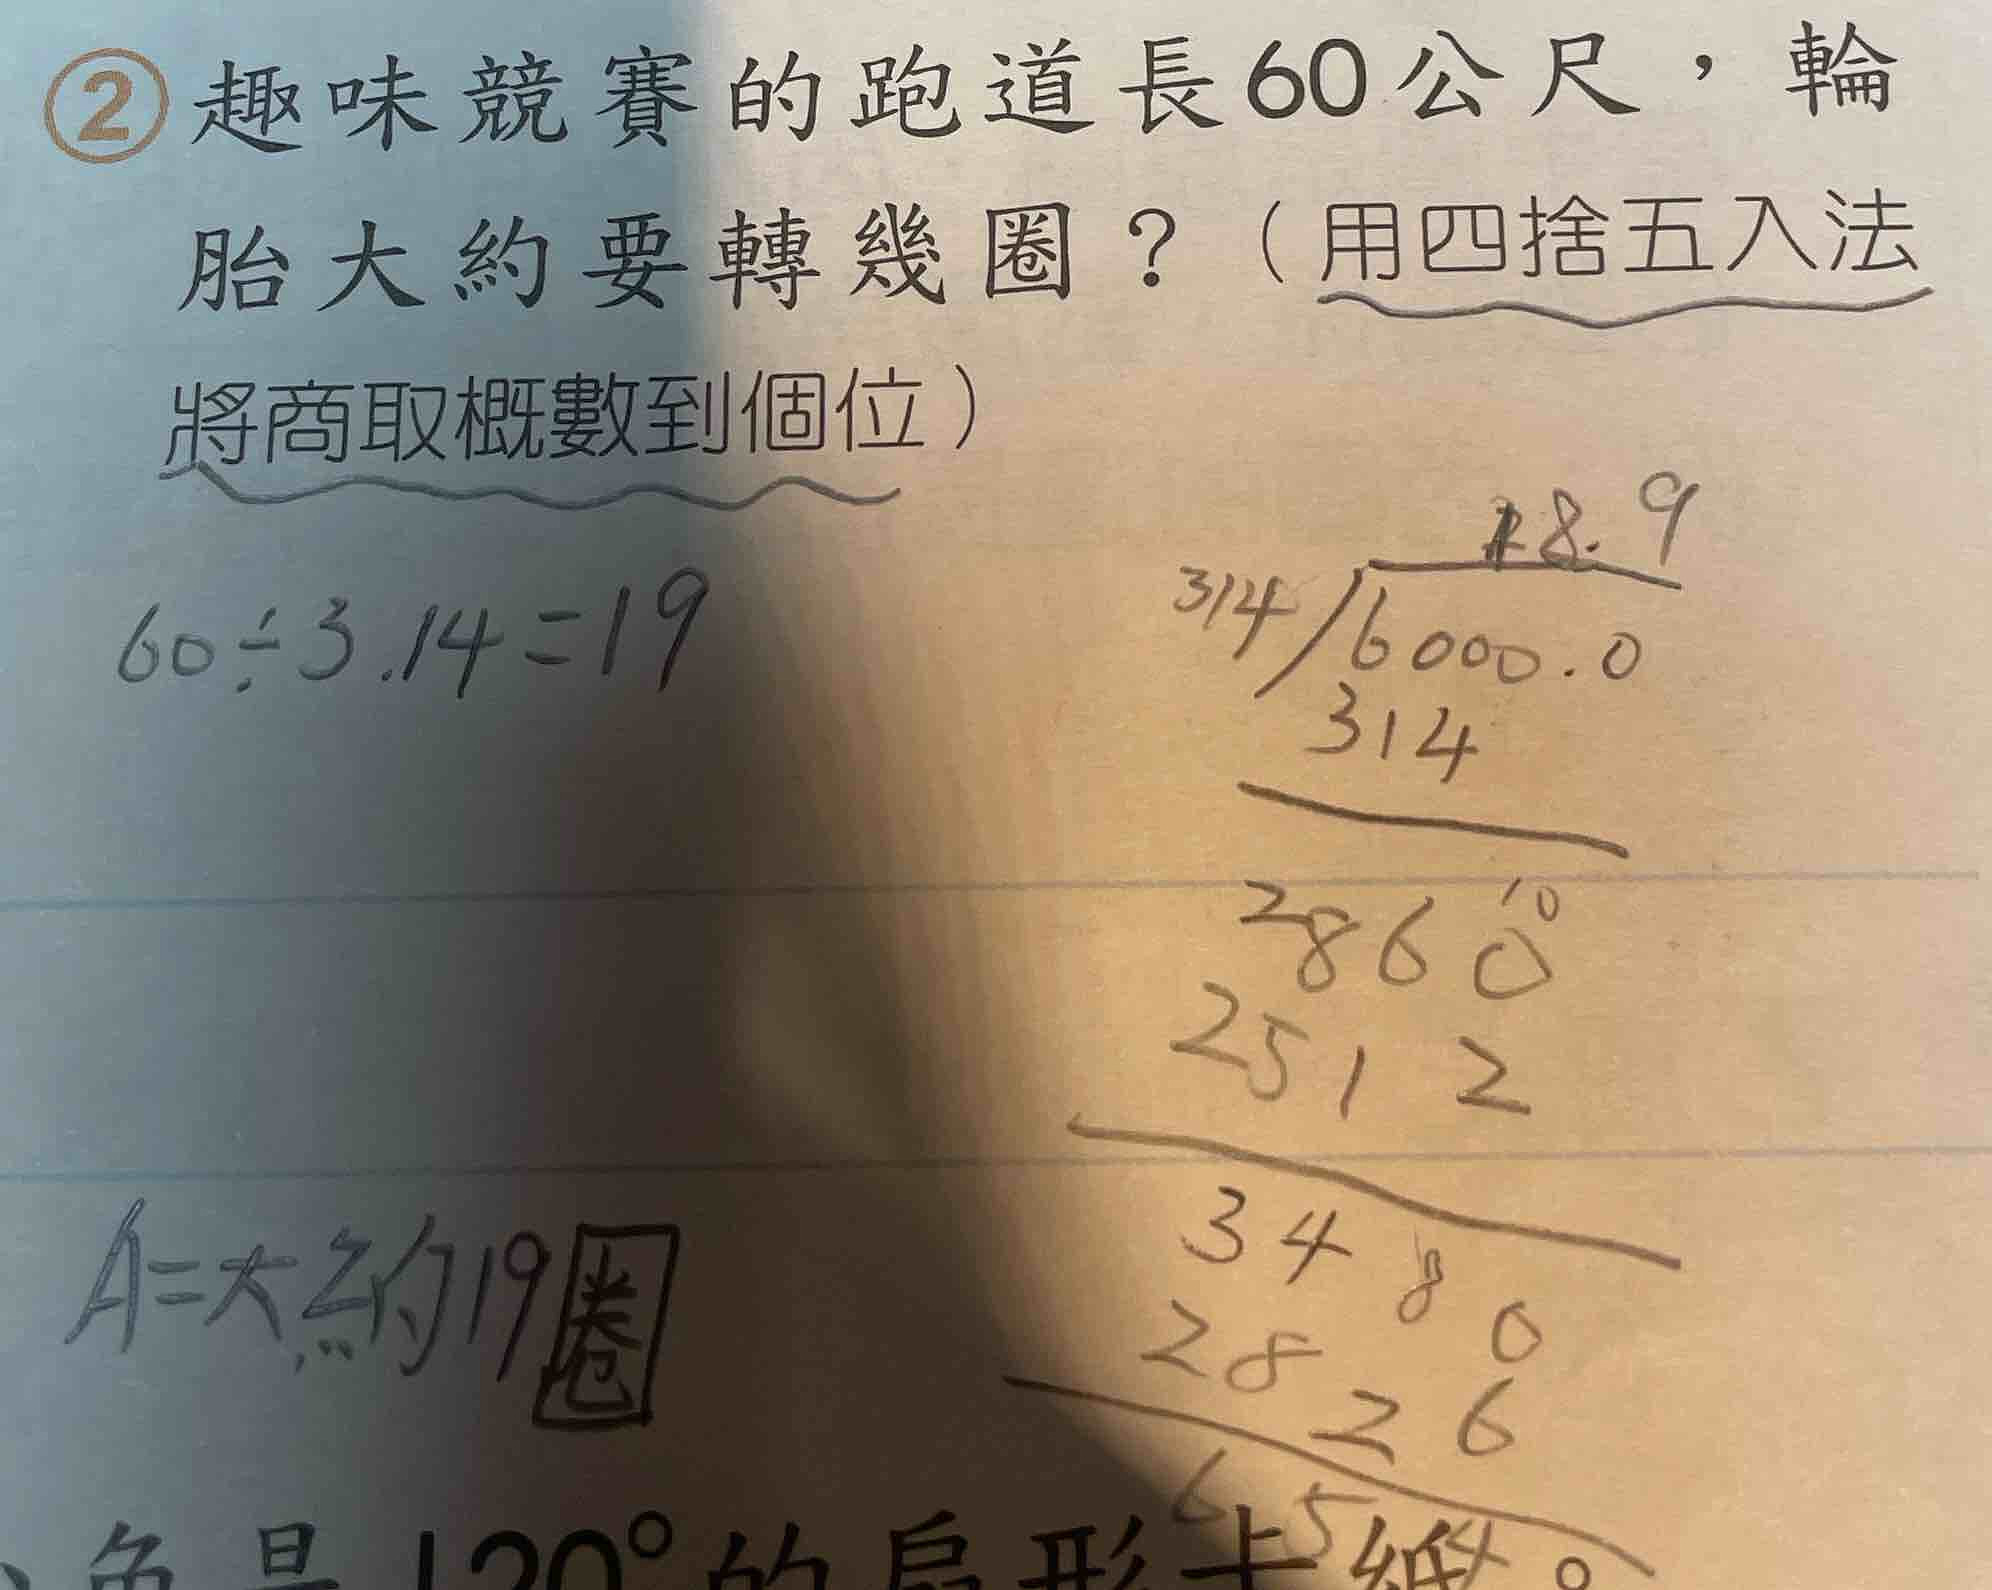 ②趣味競賽的跑道長60公尺，輪
胎大約要轉幾圈？（用四捨五入法
將商取概數到個位）
60÷3.14=19
18.9
314 6000.0
314
2860
10
2512
3480
2826
654
A=大約19圈
角是120°的扇形卡紙。